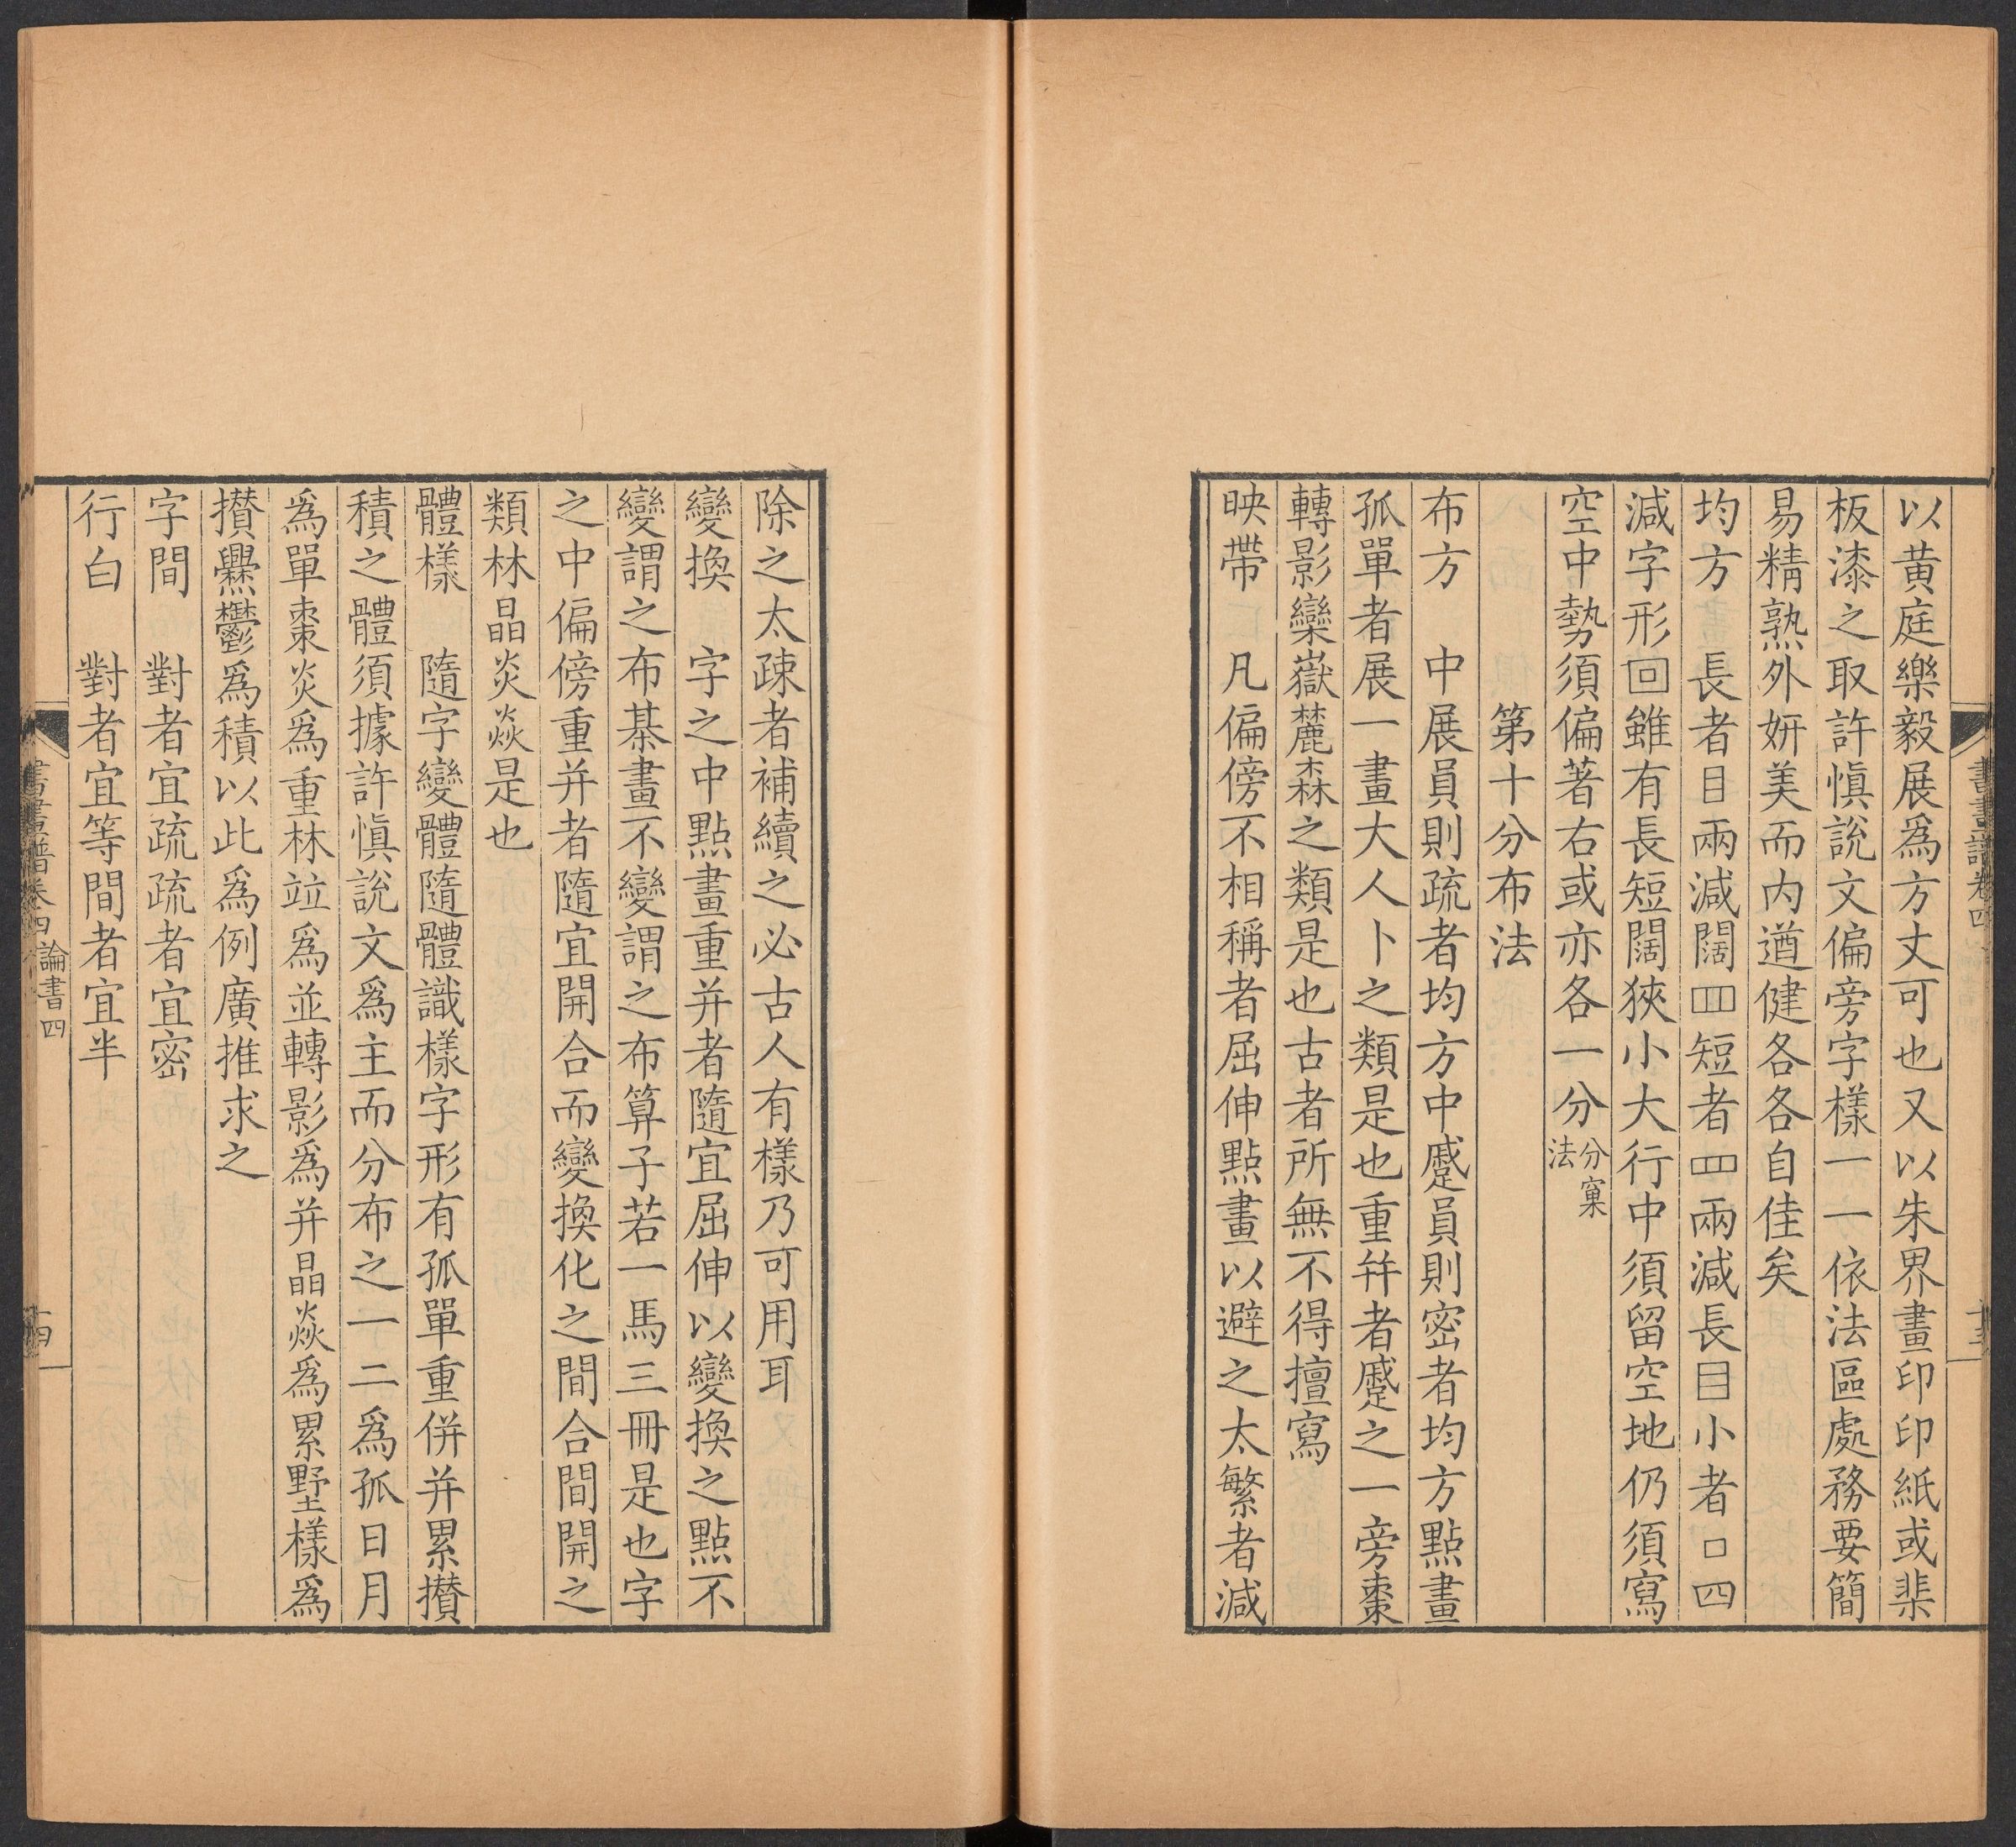 以黄庭樂毅展爲方丈可也又以朱界畫印印紙或棐
板漆之取許愼說文偏旁字様一一依法區處務要簡
易精熟外妍美而内遒健各各自佳矣
均方　長者目兩減闊四短者四兩減長目小者口四
減字形回雖有長短闊狹小大行中須留空地仍須寫
空中勢須偏著右或亦各一分分窠法
第十分布法
布方　中展員則疏者均方中蹙員則密者均方點畫
孤單者展一畫大人卜之類是也重幷者蹙之一旁棗
轉影欒嶽麓森之類是也古者所無不得擅寫
映帶　凡偏傍不相稱者屈伸點畫以避之太繁者減
除之太疎者補續之必古人有様乃可用耳
變換　字之中點畫重并者隨宜屈伸以變換之點不
變謂之布棊畫不變謂之布算子若一馬三冊是也字
之中偏傍重并者隨宜開合而變換化之間合間開之
類林晶炎焱是也
體様　隨字變體隨體識様字形有孤單重併并累攢
積之體須據許愼說文爲主而分布之一二爲孤日月
爲單棗炎爲重林竝爲並轉影爲并晶焱爲累壄様爲
攢爨鬱爲積以此爲例廣推求之
字間　對者宜疏疏者宜密
行白　對者宜等間者宜半
書畫譜卷四
十三
書畫譜卷四　論書四
十四